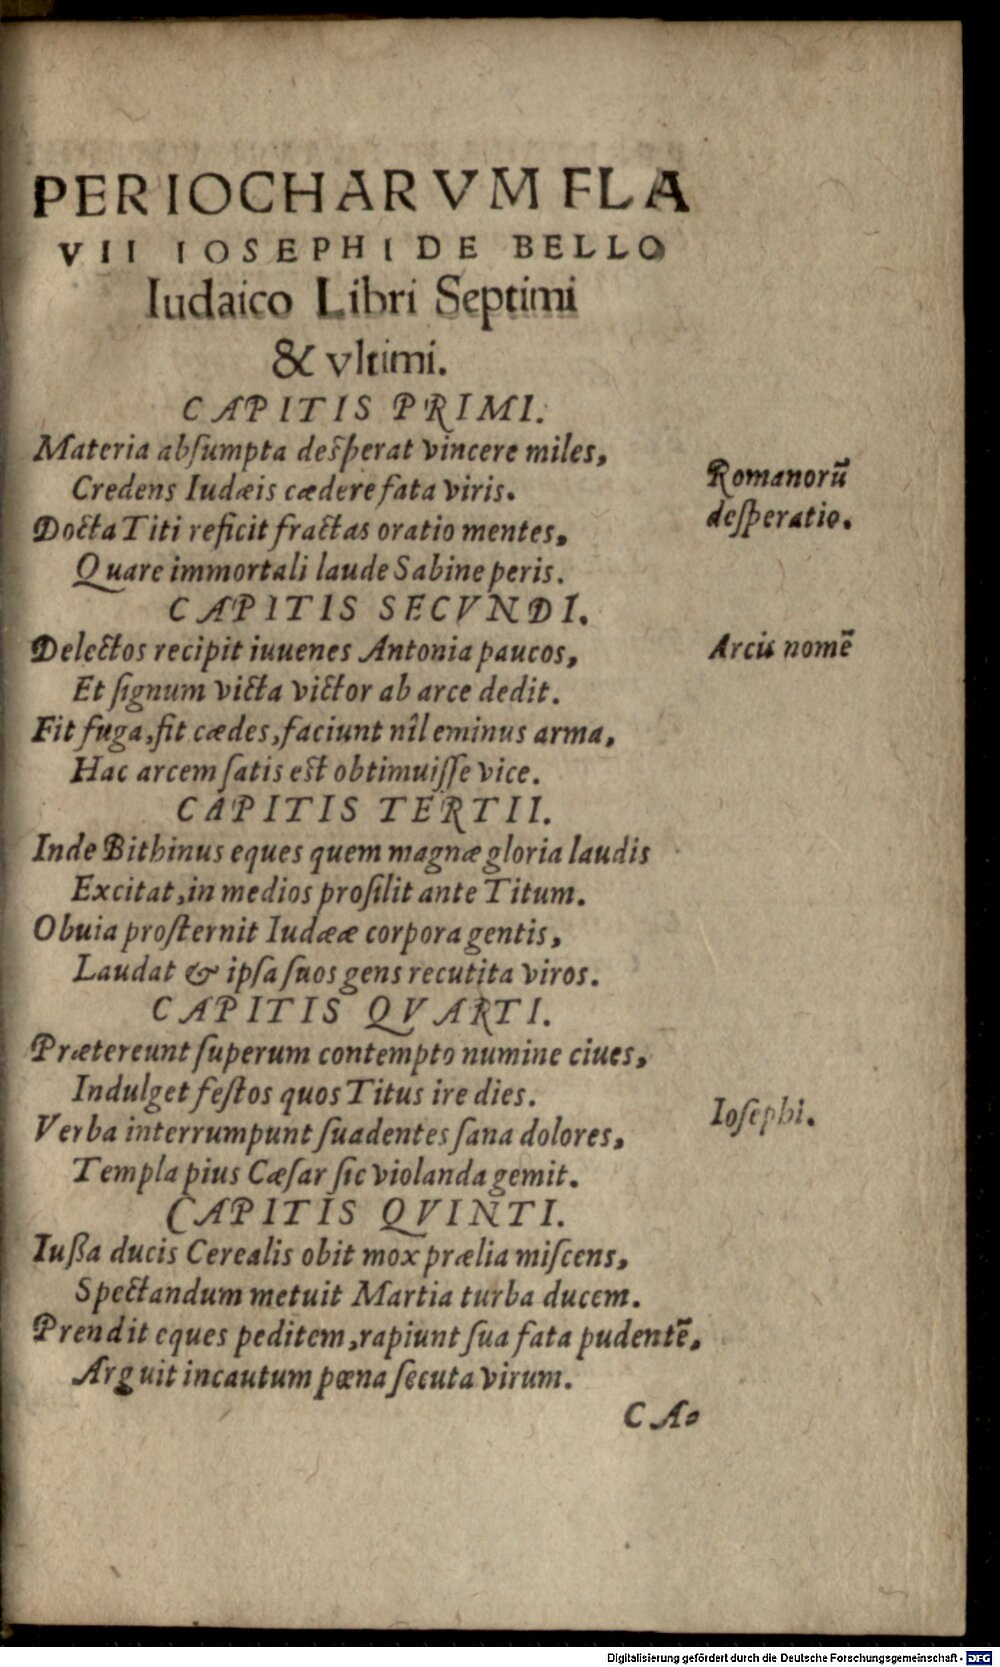 PERIOCHARVM FLA
VII IOSEPHI DE BELLO
Iudaico Libri Septimi
& vltimi.
CAPITIS PRIMI.
Materia absumpta desperat vincere miles,
Credens Iudæis cædere fata viris.
Romanorū
desperatio.
Docta Titi reficit fractas oratio mentes,
Quare immortali laude Sabine peris.
CAPITIS SECVNDI.
Delectos recipit iuuenes Antonia paucos,
Arcis nomē
Et signum victa victor ab arce dedit.
Fit fuga, fit cædes, faciunt nîl eminus arma,
Hac arcem satis est obtimuisse vice.
CAPITIS TERTII.
Inde Bithinus eques quem magnæ gloria laudis
Excitat, in medios prosilit ante Titum.
Obuia prosternit Iudææ corpora gentis,
Laudat & ipsa suos gens recutita viros.
CAPITIS QVARTI.
Prætereunt superum contempto numine ciues,
Indulget festos quos Titus ire dies.
Iosephi.
Verba interrumpunt suadentes sana dolores,
Templa pius Cæsar sic violanda gemit.
CAPITIS QVINTI.
Iußa ducis Cerealis obit mox prælia miscens,
Spectandum metuit Martia turba ducem.
Prendit eques peditem, rapiunt sua fata pudentē,
Arguit incautum pœna secuta virum.
CA-
Digitalisierung gefördert durch die Deutsche Forschungsgemeinschaft - DFG